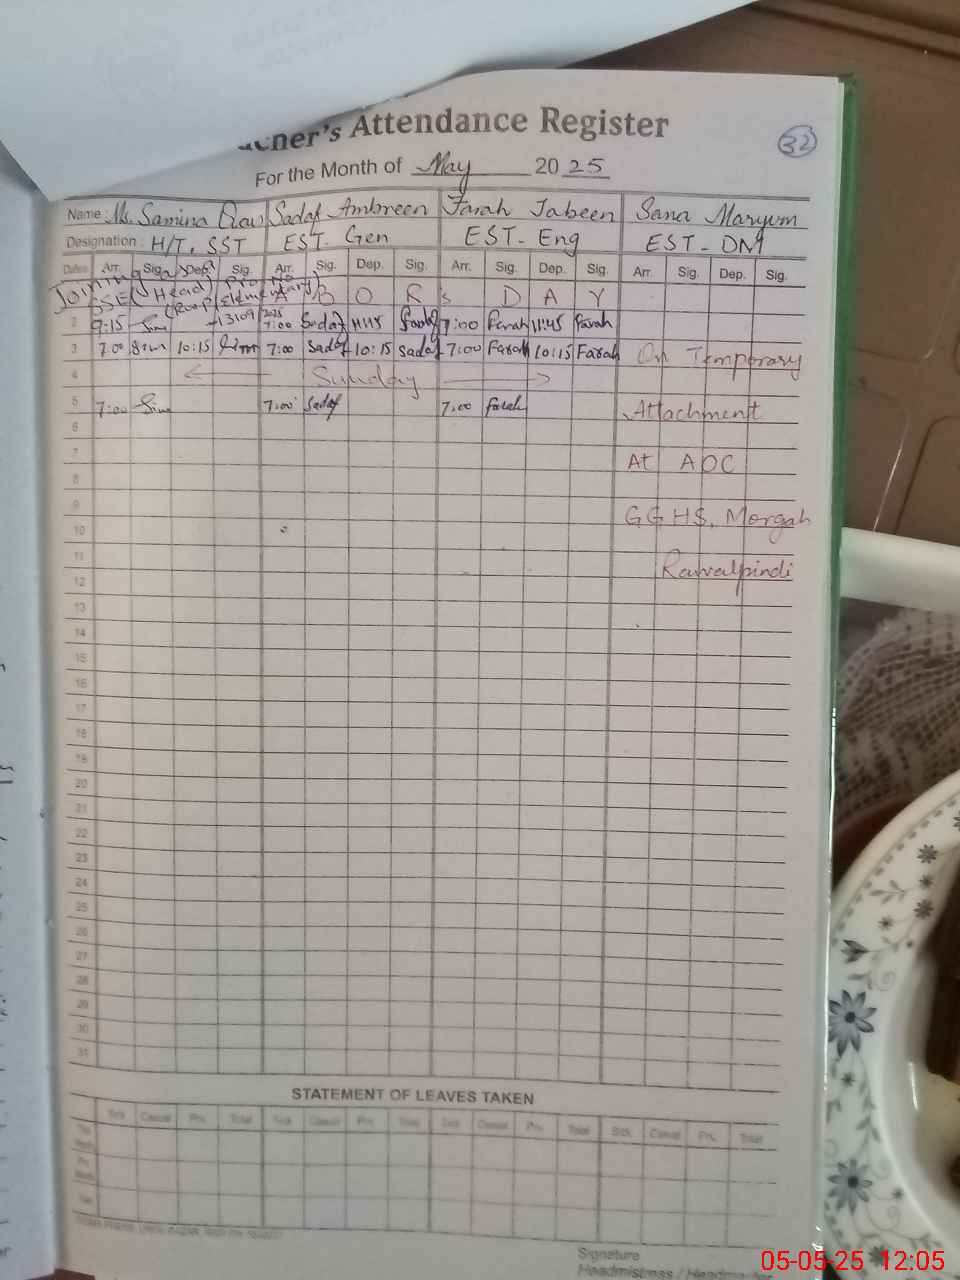 Teacher's Attendance Register
32
For the Month of May 2025
Name: Ms. Samina Sadaf Ambreen Farah Jabeen Sana Maryum
Designation: H/T, SST EST- Gen EST- Eng EST- DM
Dates Arr. Sig. Dep. Sig. Arr. Sig. Dep. Sig. Arr. Sig. Dep. Sig. Arr. Sig. Dep. Sig.
Joining as Dep
SSE (Head)
L A B O R s D A Y
2 9:15 13109 2025 7:00 Sadaf 11:45 Sadaf 7:00 Farah 11:45 Farah
3 7:00 10:15 7:00 Sadaf 10:15 Sadaf 7:00 Farah 10:15 Farah On Temporary
4 Sunday
5 7:00 7:00 Sadaf 7:00 Farah Attachment
6
7 At AOC
8
9 GGHS, Morgah
10
11 Rawalpindi
12
13
14
15
16
17
18
19
20
21
22
23
24
25
26
27
28
29
30
31
STATEMENT OF LEAVES TAKEN
Sick Casual Prv. Total Sick Casual Prv. Total Sick Casual Prv. Total Sick Casual Prv. Total
Signature
Headmistress / Headmaster
05-05-25 12:05